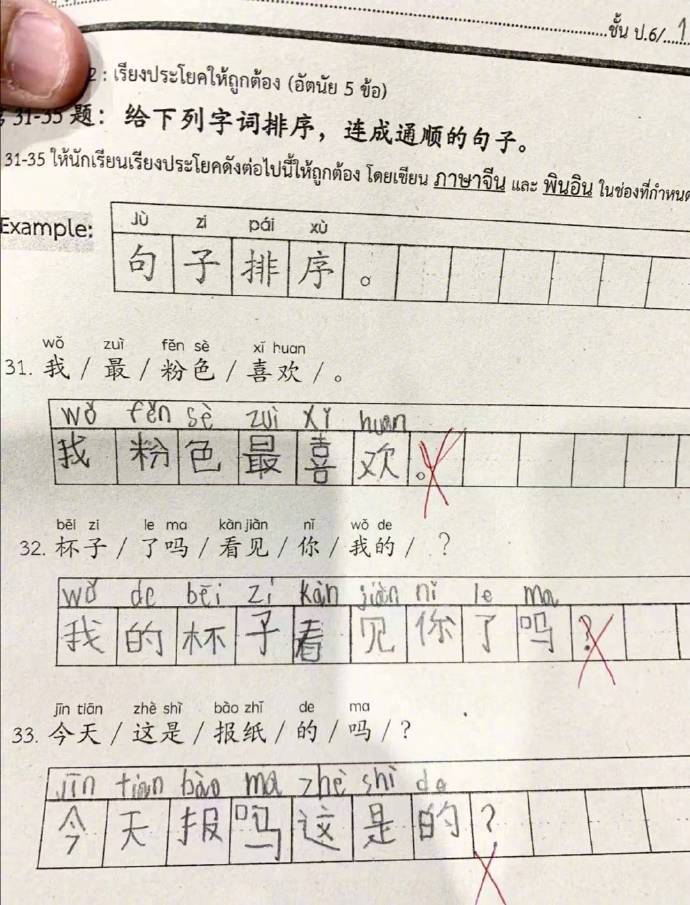 ชั้น ป.6/....1
2 : เรียงประโยคให้ถูกต้อง (อัตนัย 5 ข้อ)
31-35 题：给下列字词排序，连成通顺的句子。
31-35 ให้นักเรียนเรียงประโยคดังต่อไปนี้ให้ถูกต้อง โดยเขียน ภาษาจีน และ พินอิน ในช่องที่กำหนด
Example:
Jù zi pái xù
句子排序。
wǒ zuì fěn sè xǐ huan
31. 我 / 最 / 粉色 / 喜欢 / 。
wǒ fěn sè zuì xǐ huan
我粉色最喜欢。
bēi zi le ma kàn jiàn nǐ wǒ de
32. 杯子 / 了吗 / 看见 / 你 / 我的 / ？
wǒ de bēi zi kàn jiàn nǐ le ma
我的杯子看见你了吗？
jīn tiān zhè shì bào zhǐ de ma
33. 今天 / 这是 / 报纸 / 的 / 吗 / ？
jīn tian bào ma zhè shì de
今天报吗这是的？